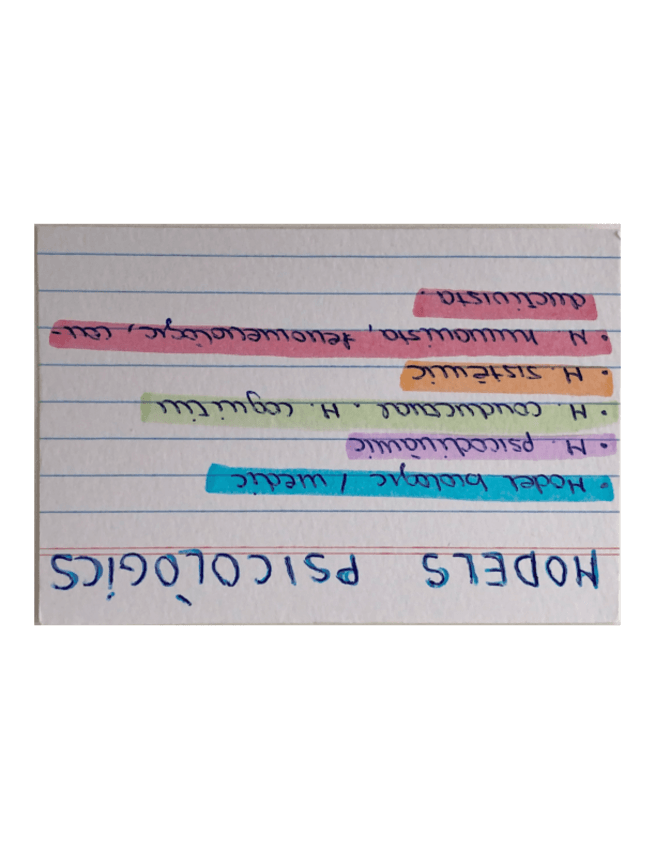 MODELS PSICOLÒGICS
· Model biològic / mèdic
· M. psicodinàmic
· M. conductual. M. cognitiu
· M. sistèmic
· M. humanista, fenomenològic, con-
ductivista.